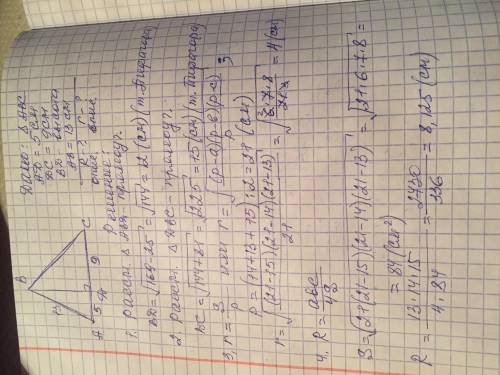 Дано: Δ ABC
AD = 5 см
DC = 9 см
BD - высота
AB = 13 см
R - ? r - ?
опис. впис.
B
13
A 5 D 9 C
Решение:
1. рассм. Δ ABD - прямоуг.
BD = √169-25 = √144 = 12 (см) (т. Пифагора)
2. Рассм. Δ DBC - прямоуг.
BC = √144+81 = √225 = 15 (см) (т. Пифагора)
3. r = S/p или r = √(p-a)(p-b)(p-c)/p ;
p = (14+13+15):2 = 21 (см)
r = √(21-15)(21-14)(21-13)/21 = √6·7·8/21 = 4 (см)
4. R = abc/4S
S = √21(21-15)(21-14)(21-13) = √21·6·7·8 =
= 84 (см²)
R = 13·14·15/4·84 = 2730/336 = 8,125 (см)